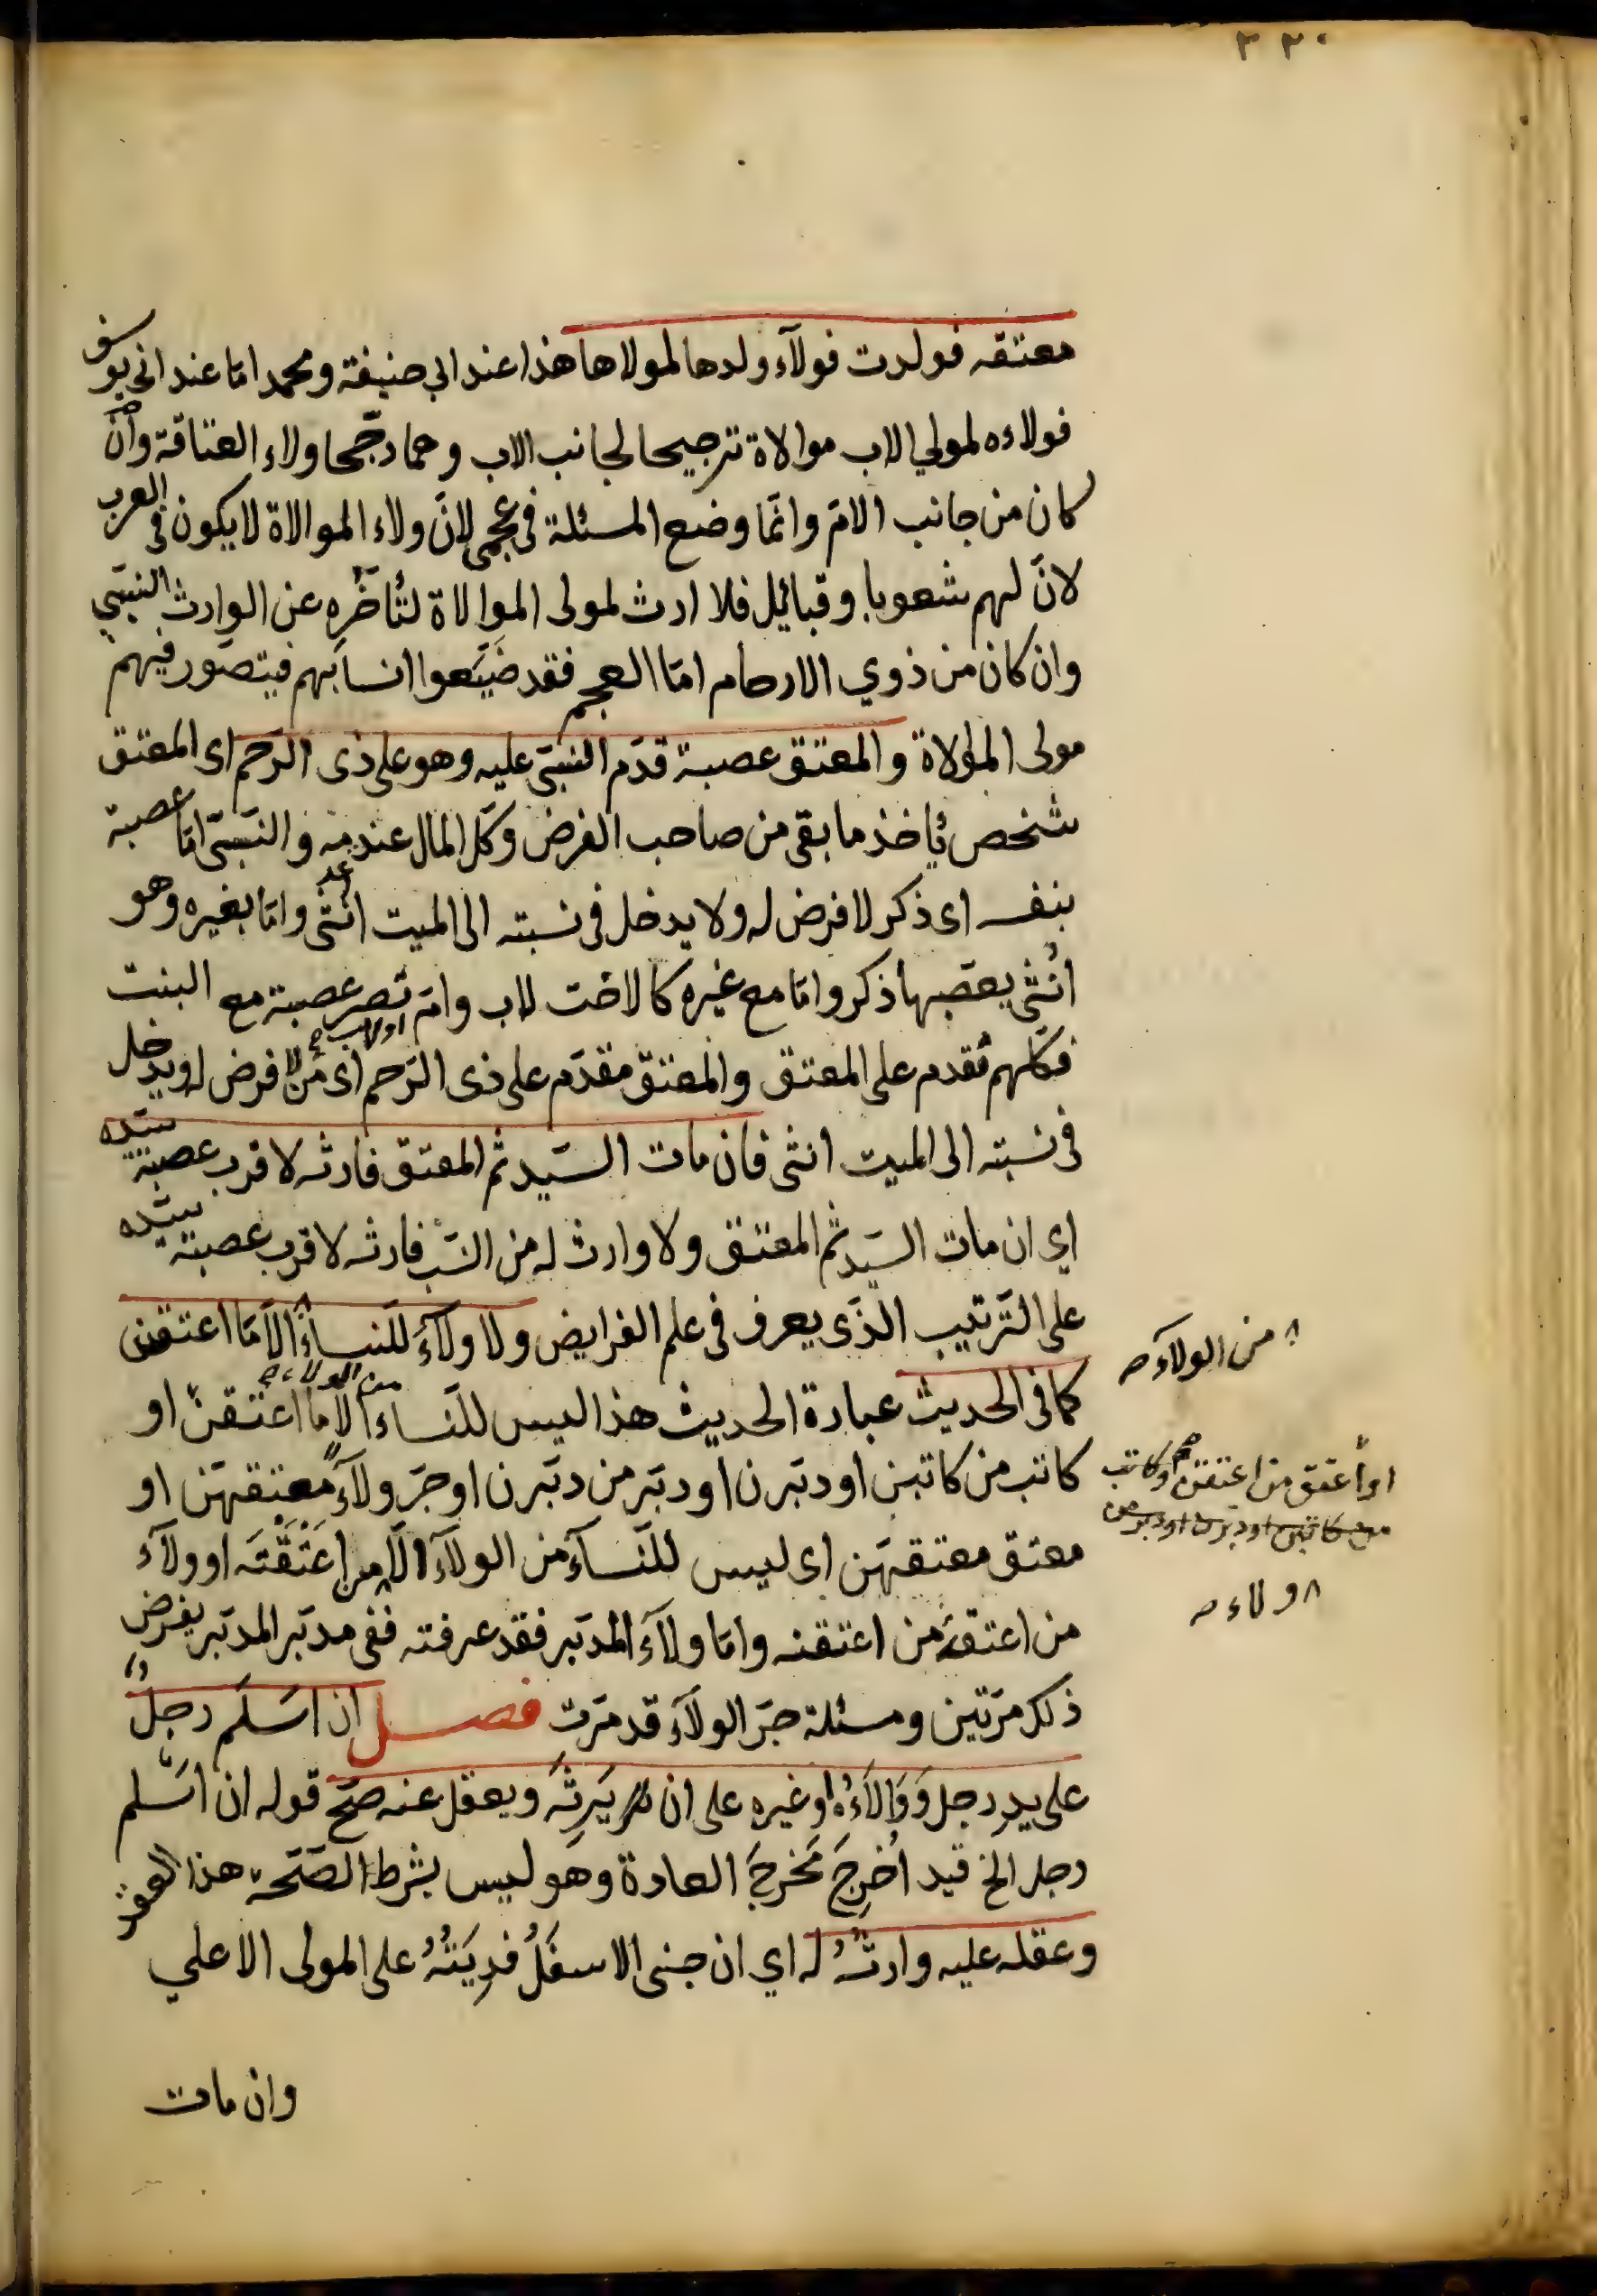 ٣٣٠
معتقه فولدت فولآء ولدها لمولاها هذا عند ابي حنيفة ومحمد امّا عند ابي يوسف
فولاءه لموالي الاب موالاة ترجيحا لجانب الاب وهما رجّحا ولاء العتاقة وانّ
كان من جانب الامّ وانّما وضع المسئلة في عجمى لانّ ولاء الموالاة لا يكون في العرب
لانّ لهم شعوبا وقبائيل فلا ارث لمولى الموالاة لتأخّره عن الوارث النسبي
وان كان من ذوي الارحام امّا العجم فقد ضيّعوا انسابهم فيتصوّر فيهم
مولى الموالاة والمعتق عصبة قدّم النسبيّ عليه وهو على ذى الرّحم اى المعتق
شخص يأخذ ما بقى من صاحب الفرض وكلّ المال عند عدمه والنسبيّ امّا عصبة
بنفسه اى ذكر لا فرض له ولا يدخل في نسبته الى الميت انثى وامّا بغيره وهو
انثى يعصّبها ذكر وامّا مع غيره كالاخت للاب وامّ اولاب تصير عصبة مع البنت
فكلّهم تقدم على المعتق والمعتق مقدّم على ذى الرّحم اى من لا فرض له ويدخل
في نسبته الى الميت انثى فان مات السّيد ثم المعتق فارثه لاقرب عصبة سيّده
اي ان مات السّيد ثم المعتق ولا وارث له من النسب فارثه لاقرب عصبة سيّده
على التّرتيب الذّى يعرف في علم الفرايض ولا ولآء للّنسآء الّا ما اعتقن
كما في الحديث عبارة الحديث هذا ليس للنّساء من الولاء الّا ما اعتقن او
كاتب من كاتبن او دبّرن او دبّر من دبّرن او جرّ ولآء معتقهنّ او
معتق معتقهنّ اى ليس للنّسآء من الولآء الّا من اعتقته او ولآء
من اعتقه من اعتقنه وامّا ولآء المدبّر فقد عرفته ففى مدبّر المدبّر يفرض
ذلك مرّتين ومسئلة جرّ الولآء قد مرّت فصل ان اسلم رجلٌ
على يد رجل ووالآءه او غيره على ان يرثه ويعقل عنه صحّ قوله ان اسلم
رجل الخ قيد اُخرِجَ مَخرجَ العادة وهو ليس بشرط الصّحّة هذا العقد
وعقله عليه وارثه له اي ان جنى الاسفلُ فدِيَتُهُ على المولى الاعلى
وان مات
من الولآء صح
او اعتق من اعتقن او كاتب
من كاتبن او دبّرن او دبّر من
ولاء صح